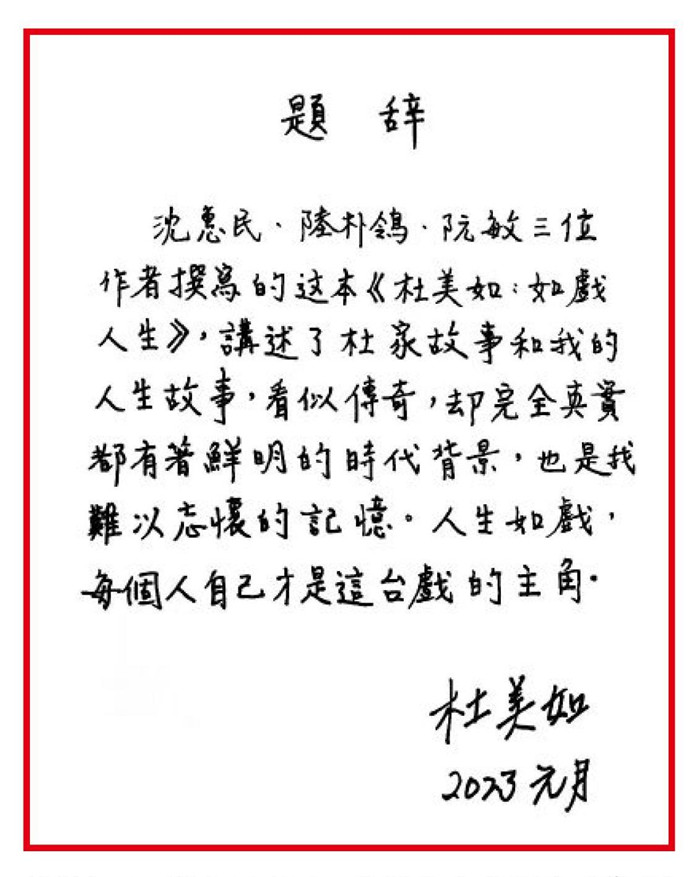 題 辞
沈惠民、陸朴鴿、阮敏三位
作者撰寫的这本《杜美如：如戲
人生》，講述了杜家故事和我的
人生故事，看似傳奇，却完全真實
都有著鮮明的時代背景，也是我
難以忘懷的記憶。人生如戲，
每個人自己才是這台戲的主角。
杜美如
2023元月